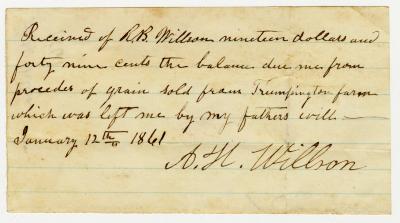 Received of R.B. Willson nineteen dollars and
forty nine cents the balance due me from
procedes of grain sold from Trumpington farm
which was left me by my fathers will —
January 12th 1861
A. H. Willson